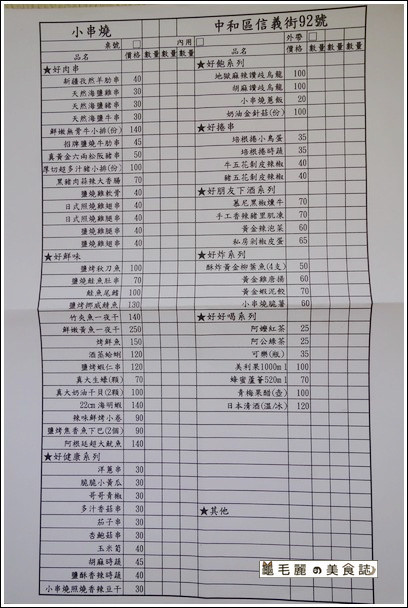 小串燒
中和區信義街92號
桌號 □ 內用 □ 外帶 □
品名 價格 數量 數量 數量
★好肉串
新疆孜然羊肋串 40
天然海鹽雞串 30
天然海鹽豬串 30
天然海鹽牛串 30
鮮嫩無骨牛小排(份) 140
招牌鹽燒牛肋串 45
真黃金六兩松阪豬串 50
厚切超多汁豬小排(份) 100
黑豬肉蒜辣大香腸 70
鹽燒雞軟骨 40
日式照燒雞翅串 40
日式照燒雞腿串 40
鹽燒雞腿串 40
鹽燒雞翅串 40
★好鮮味
鹽烤秋刀魚 100
鹽燒鮭魚肚串 70
鮭魚尾鰭 100
鹽烤挪威鯖魚 130
竹灸魚一夜干 140
鮮嫩黃魚一夜干 250
烤鮮魷 150
酒蒸蛤蜊 120
鹽烤蝦仁串 120
真大生蠔(顆) 70
真大奶油干貝(2顆) 100
22cm海明蝦 140
辣味鮮烤小卷 90
鹽烤黑香魚下巴(2個) 90
阿根廷超大魷魚 140
★好健康系列
洋蔥串 30
脆脆小黃瓜 30
哥哥青椒 30
多汁香菇串 30
茄子串 30
杏鮑菇串 30
玉米筍 40
胡麻時蔬 45
鹽酥香辣時蔬 40
小串燒照燒香辣豆干 30
品名 價格 數量 數量 數量
★好飽系列
地獄麻辣讚岐烏龍 100
胡麻讚岐烏龍 100
小串燒蔥飯 20
奶油金針菇(份) 100
★好捲串
培根捲小鳥蛋 35
培根捲時蔬 35
牛五花剝皮辣椒 40
豬五花剝皮辣椒 40
★好朋友下酒系列
慕尼黑椒燻牛 70
手工香辣豬里肌凍 70
黃金辣泡菜 60
私房剝椒皮蛋 65
★好炸系列
酥炸黃金柳葉魚(4支) 50
黃金雞唐揚 60
黃金蝦泥餃 70
小串燒脆薯 60
★好好喝系列
阿嬤紅茶 25
阿公綠茶 25
可樂(瓶) 35
美利果1000ml 100
蜂蜜蘆薈520ml 70
青梅果醋(壺) 100
日本清酒(溫/冰) 120
★其他
毛麗の美食誌